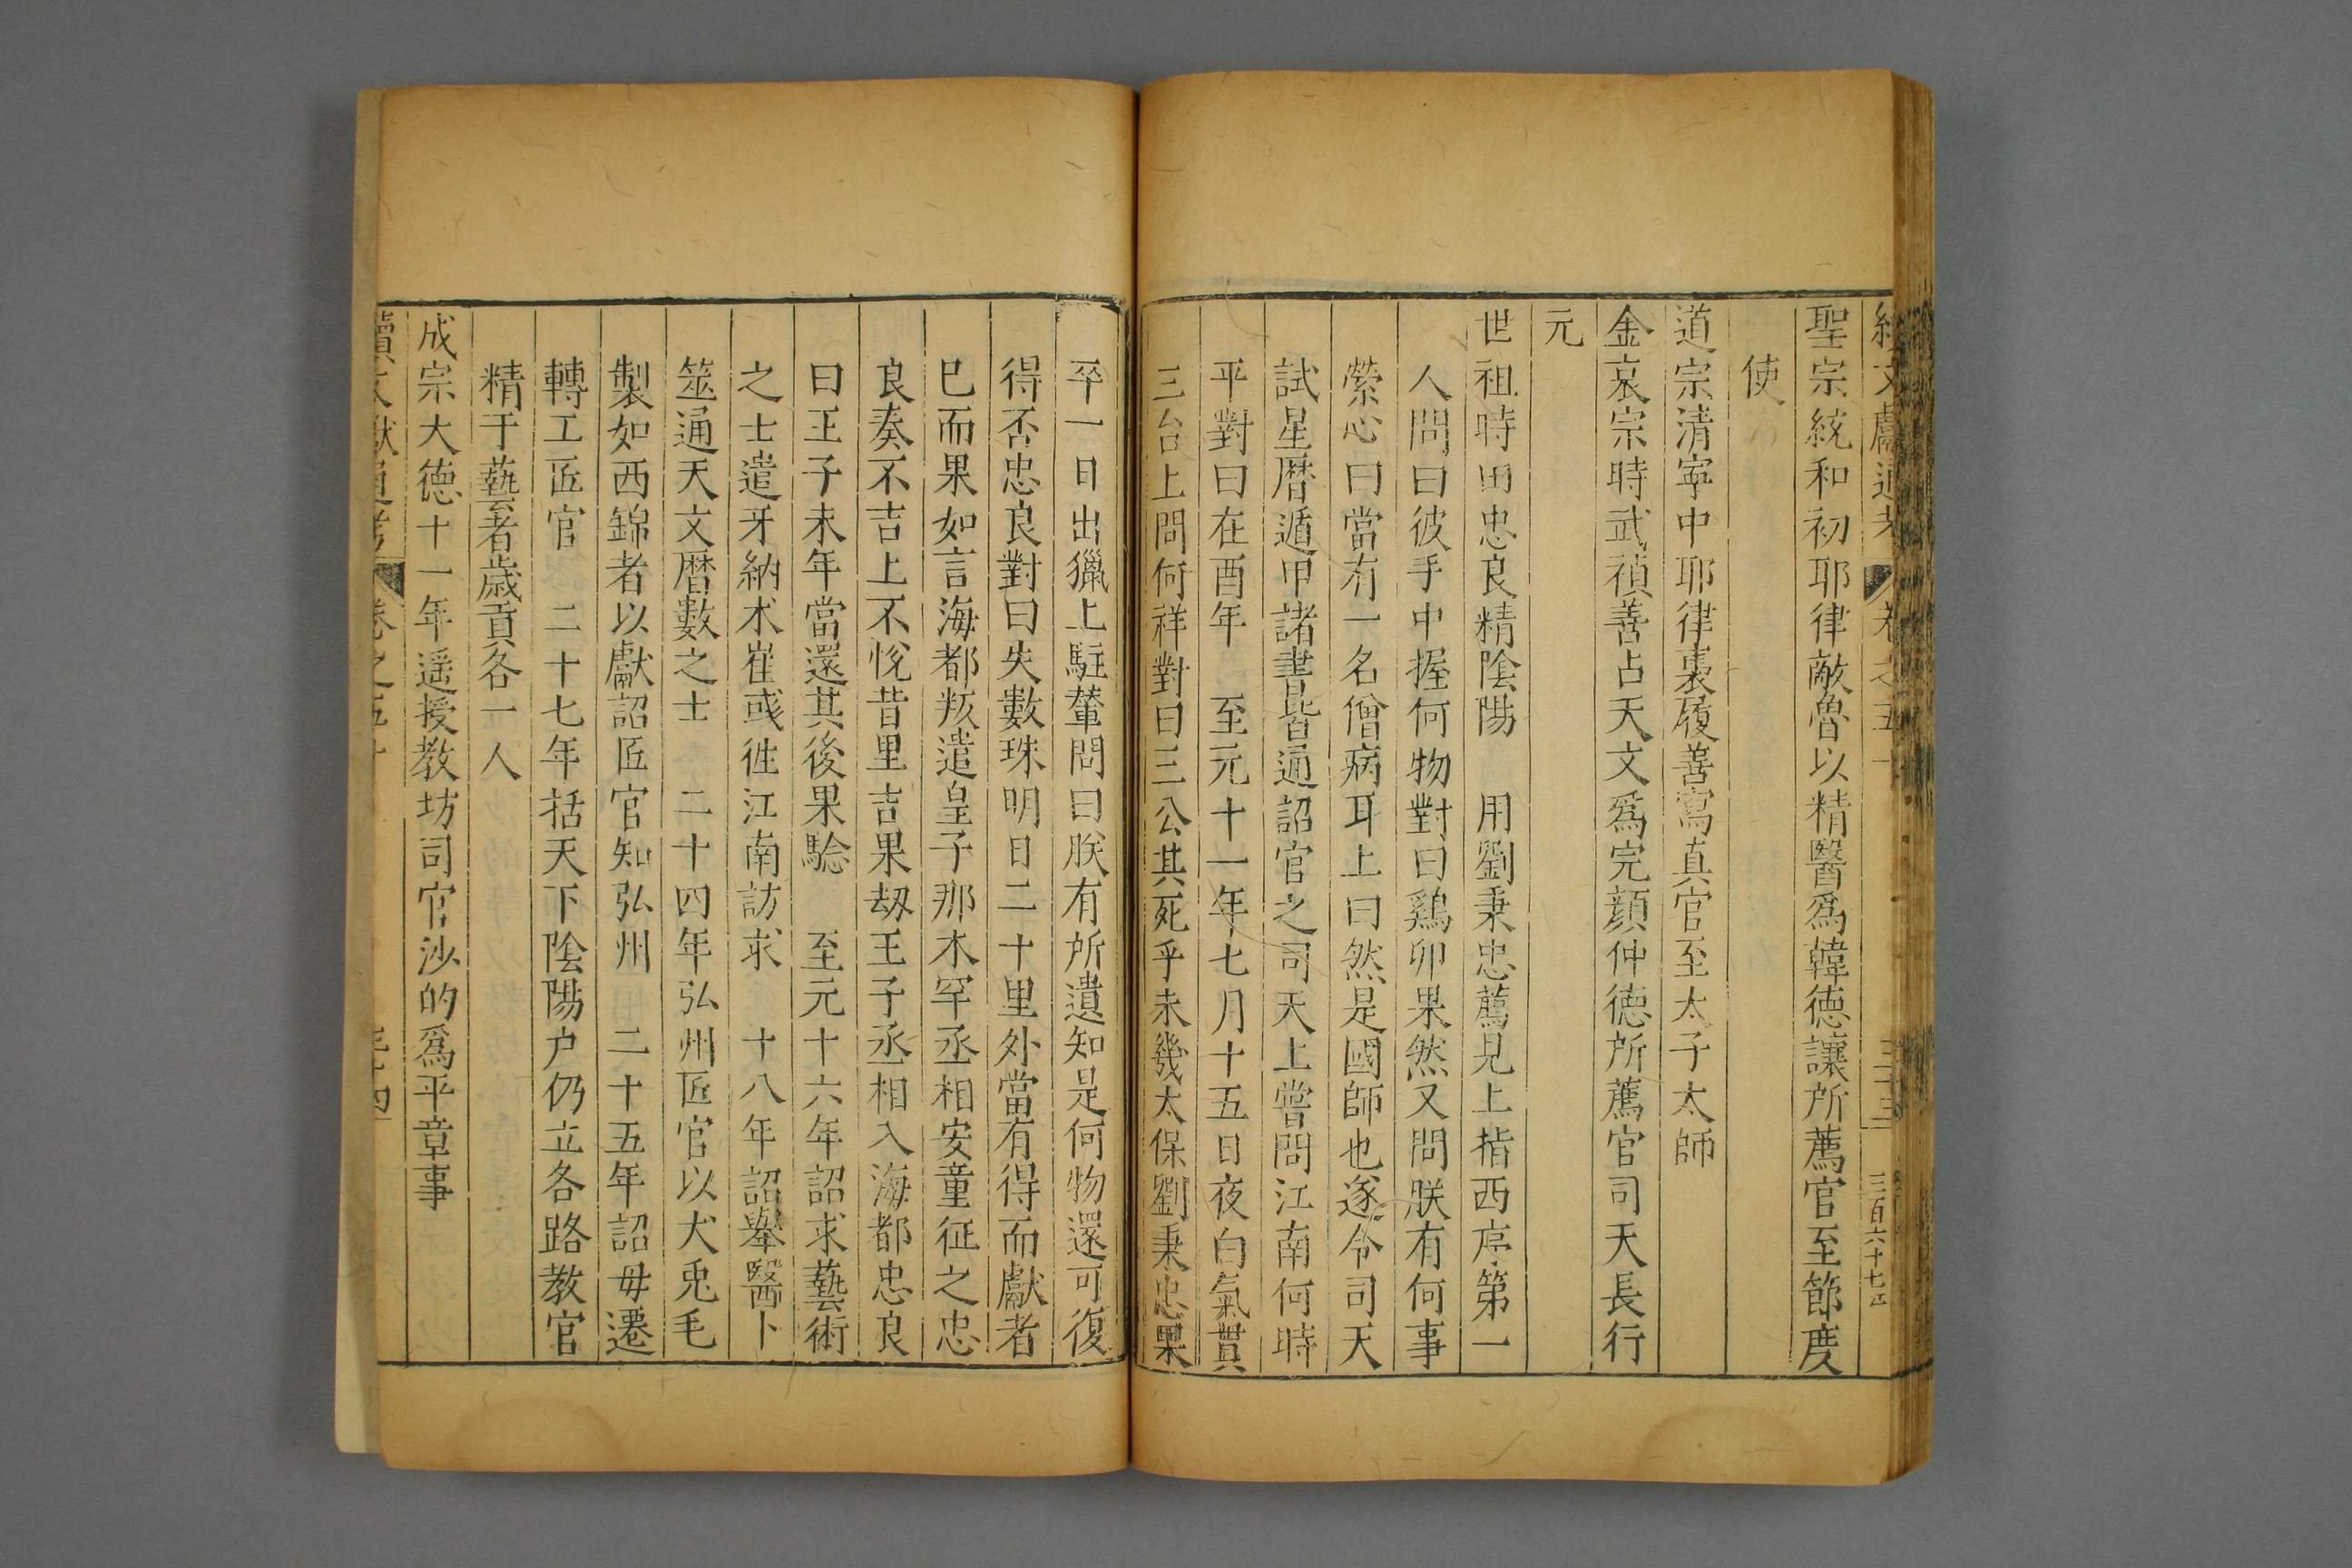 聖宗統和初耶律敵魯以精醫爲韓德讓所薦官至節度
使
道宗清寧中耶律裏履善寫真官至太子太師
金哀宗時武禎善占天文爲完顔仲德所薦官司天長行
元
世祖時田忠良精陰陽 用劉秉忠薦見上指西序第一
人問曰彼手中握何物對曰鷄卵果然又問朕有何事
縈心曰當有一名僧病耳上曰然是國師也遂令司天
試星曆遁甲諸書皆通詔官之司天上嘗問江南何時
平對曰在酉年 至元十一年七月十五日夜白氣貫
三台上問何祥對曰三公其死乎未幾太保劉秉忠果
卒一日出獵上駐輦問曰朕有所遺知是何物還可復
得否忠良對曰失數珠明日二十里外當有得而獻者
已而果如言海都叛遣皇子那木罕丞相安童征之忠
良奏不吉上不悅昔里吉果刼王子丞相入海都忠良
曰王子未年當還其後果驗 至元十六年詔求藝術
之士遣牙納术崔彧徃江南訪求 十八年詔舉醫卜
筮通天文曆數之士 二十四年弘州匠官以犬兎毛
製如西錦者以獻詔匠官知弘州 二十五年詔毋遷
轉工匠官 二十七年括天下陰陽户仍立各路教官
精于藝者歲貢各一人
成宗大德十一年遥授教坊司官沙的爲平章事
續文獻通考 卷之五十 三十四